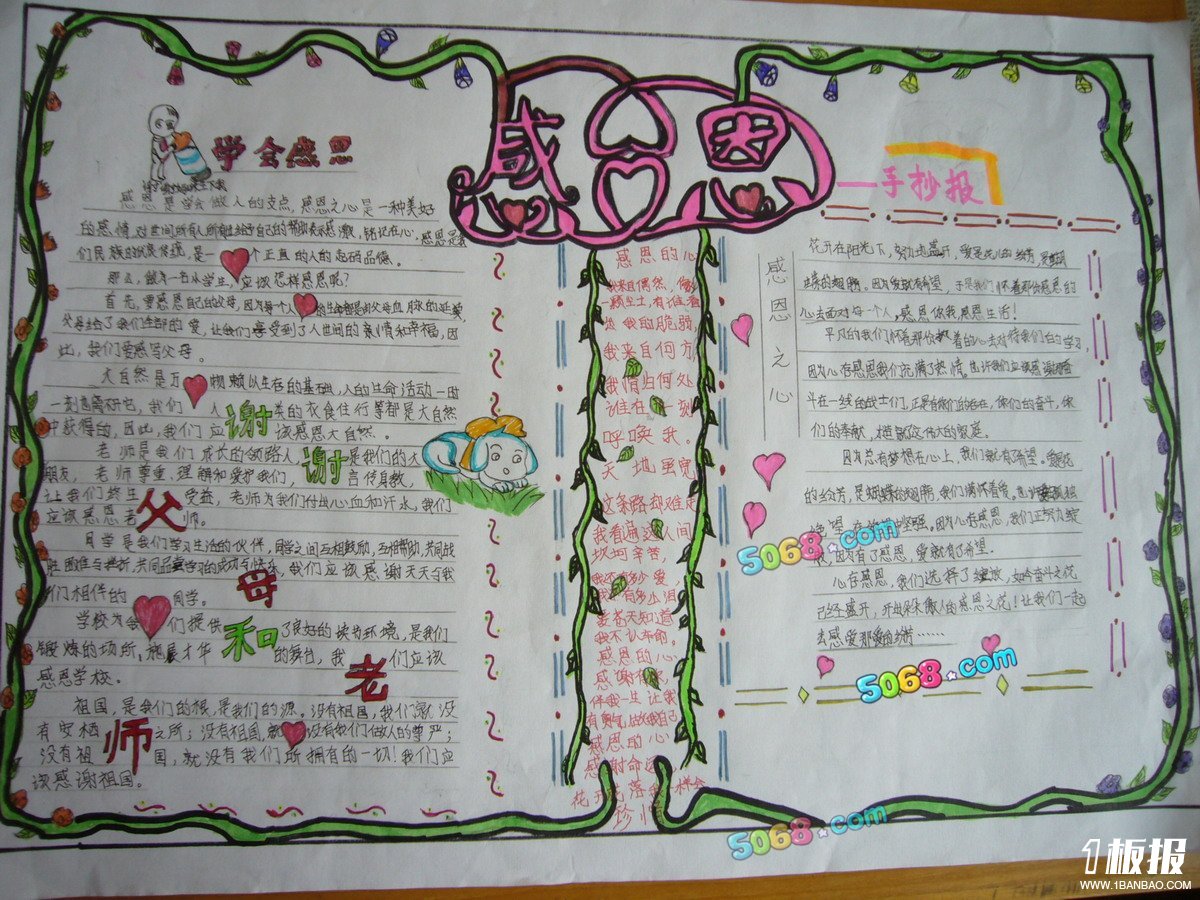 感恩
手抄报
学会感恩
感恩是学会做人的支点,感恩之心是一种美好
的感情,对世间所有人所有
给予自己的帮助表示感激,铭记在心,感恩是我
们民族的优良传统,是一个正直的人的起码品德。
那么,做为一名小学生,应该怎样感恩呢?
首先,要感恩自己的父母,因为每个人的生命都是父母血脉的延续,
父母给了我们全部的爱,让我们享受到了人世间的亲情和幸福,因
此,我们要感写父母。
大自然是万物赖以生存的基础,人的生命活动一时
一刻也离不开它,我们人类的衣食住行等都是大自然
中获得的,因此,我们应该感恩大自然。
老师是我们成长的领路人,是我们的大
朋友,老师尊重、理解和爱护我们,言传身教,
让我们终生受益,老师为我们付出心血和汗水,我们
应该感恩老师。
同学是我们学习生活的伙伴,同学之间互相鼓励,互相帮助,共同战
胜困难与挫折,共同品尝学习的成功与快乐,我们应该感谢天天与我
们相伴的同学。
学校为我们提供了良好的读书环境,是我们
锻炼的场所,施展才华的舞台,我们应该
感恩学校。
祖国,是我们的根,是我们的源。没有祖国,我们就没
有安栖之所;没有祖国,就没有我们做人的尊严;
没有祖国,就没有我们所拥有的一切!我们应
该感谢祖国。
谢
谢
父
母
和
老
师
感恩的心
我来自偶然,像
一颗尘土,有谁看
出我的脆弱,
我来自何方,
我情归何处
谁在下一刻
呼唤我。
天地虽宽
这条路却难走
我看遍这人间
坎坷辛苦,
我还有多少爱,
我还有多少泪
要苍天知道
我不认输
感恩的心
感谢有你,
伴我一生 让我
有勇气,做我自己
感恩的心
感谢命运
花开花落我一样会
珍惜
感恩之心
花开在阳光下,努力地盛开,爱是花儿的给芳,是蝴蝶
的翅膀,因为爱就有希望,于是我们怀着那份感恩的
心去面对每一个人,感恩你我感恩生活!
平凡的我们怀着那份执着的心去对待我们自的学习,
因为心存感恩我们充满了热情。也许我们应该感谢
奋斗在一线的战士们,正是有你们的存在,你们的奋斗,你
们的奉献,才造就这伟大的家庭。
因为总有梦想在心上,我们就有希望。爱是花
的给芳,是蝴蝶的翅膀,我们满怀着爱,也许
坚强。因为心存感恩,我们正努力绽
放,因为有了感恩,爱就有了希望。
心存感恩,我们选择了绽放,如今奋斗之花
已经盛开,开出朵朵傲人的感恩之花!让我们一起
去感爱那爱的给芳……
5068.com
5068.com
5068.com
1板报
WWW.1BANBAO.COM